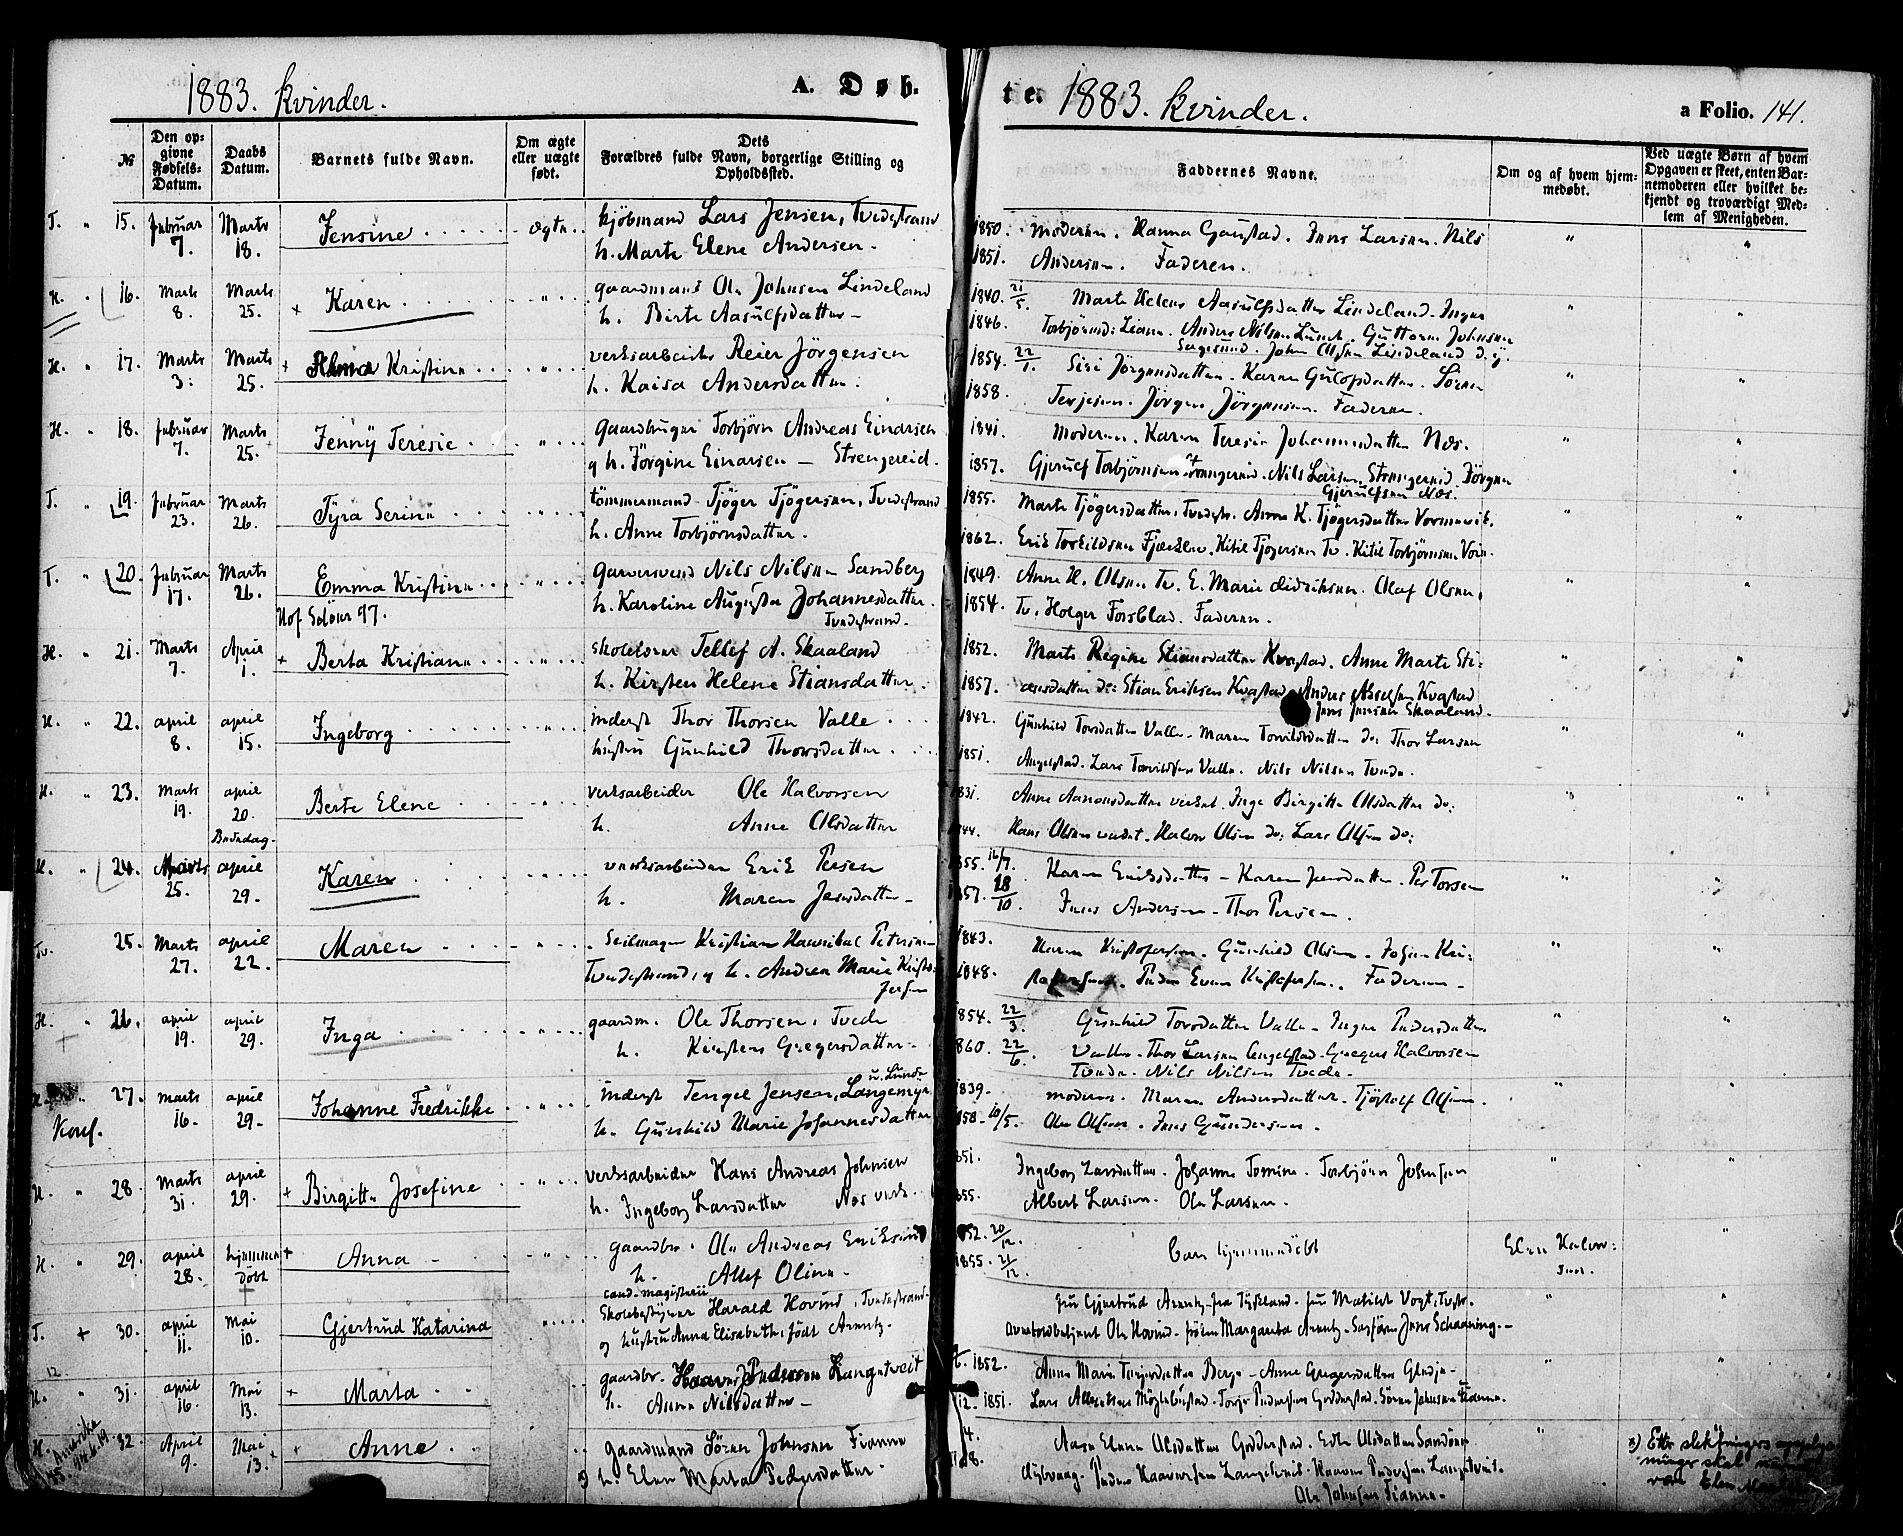 1883. Kvinder.
A. Døb.
№
Den opgivne Fødsels-Datum.
Daabs Datum.
Barnets fulde Navn.
Om ægte eller uægte født.
Dets Forældres fulde Navn, borgerlige Stilling og Opholdssted.
T. " 15. Februar 7. Marts 18. Jensine ægte kjöbmand Lars Jensen, Tvedestrand
h. Marte Elene Andersen.
H. " 16. Marts 8. Marts 25. + Karen " gaardmand Ole Johnsen Lindeland
h. Birte Aasulfsdatter
H. " 17. Marts 3. Marts 25. + Kristine " verksarbeider Reier Jörgensen
h. Kaisa Andersdatter.
H. " 18. Februar 7. Marts 25. Jenny Teresie " Gaardbruger Torbjörn Andreas Einarsen
og h. Jörgine Einarsen - Strengereid.
T. " 19. Februar 23. Marts 26. Tyra Serine " tömmermand Tjöger Tjögersen, Tvedestrand
h. Anne Torbjörnsdatter.
T. " 20. Februar 17. Marts 26. Emma Kristine " Garversvend Nils Nilsen Sandberg
Hof Solöer 97. h. Karoline Augusta Johannesdatter.
Tvedestrand.
H. " 21. Marts 7. April 1. + Berta Kristiane " skolelærer Tellef A. Skaaland
h. Kirsten Helene Stiansdatter.
H. " 22. april 8. april 15. Ingeborg " inderst Thor Thorsen Valle
hustru Gunhild Thorsdatter
H. " 23. Marts 19. april 20. Bededag. Berte Elene " verksarbeider Ole Halvorsen
h. Anne Olsdatter
H. " 24. Marts 25. april 29. Karen " verksarbeider Erik Persen
h. Maren Jensdatter
Tv. 25. Marts 27. april 22. Maren " Seilmager Kristian Hannibal Petersen
Tvedestrand, og h. Andrea Marie Kristofersen
H. " 26. april 19. april 29. Inga " gaardm. Ole Thorsen, Tvede
h. Kirsten Gregersdatter
H. " 27. Marts 16. april 29. Johanne Fredrikke " inderst Tengel Jensen, Langemyr u. Lunde
Konf. h. Gunhild Marie Johannesdatter
H. " 28. Marts 31. april 29. + Birgitte Josefine " verksarbeider Hans Andreas Johnsen
h. Ingeborg Larsdatter Næs verk.
H. " 29. april 28. hjemmedöbt + Anna " gaardbr. Ole Andreas Eriksen
h. Allef Oline
T. + 30. april 11. Mai 10. Gjertrud Katarina " cand. magisterii
Skolebestyrer Harald Hovind, Tvedestrand
og hustru Anna Elisabeth, født Arentz.
H. 31. april 16. Mai 13. + Marta gaardbr. Haaver Pedersen Langetveit
h. Anne Nilsdatter
H. 32. April 9. Mai 13. + Anne gaardmand Sören Johnsen Fianne
Amerika h. Elen Marta Pedersdatter.
t e. 1883. Kvinder.
a Folio. 141.
Faddernes Navne.
Om og af hvem hjemmedøbt.
Ved uægte Børn af hvem Opgaven er skeet, enten Barnemoderen eller hvilket bekjendt og troværdigt Medlem af Menigheden.
1850. Moderen. Hanna Gaustad. Jens Larsen. Nils
1851. Andersen. Faderen.
1840. 21/5. Marte Helene Aasulfsdatter Lindeland. Inger
1846. Torbjörnsd: Liane. Anders Nilsen Lunde. Guttorm Johnsen
Sagesund. John Olsen Lindeland d.y.
1854. 22/1. Siri Jörgensdatter. Karen Gulofsdatter. Sören
1858. Terjesen. Jörgen Jörgensen. Faderen.
1841. Moderen. Karen Teresie Johannesdatter Næs.
1857. Gjerulf Torbjörnsen Strengereid. Nils Larsen Strengereid. Jörgen
Gjerulfsen Næs.
1855. Marte Tjögersdatter, Tvedestr. Anne K. Tjögersdatter Vormevik.
1862. Erik Torkildsen Fjærkleiv. Kitil Tjögersen Tv. Kitil Torbjörnsen
1849. Anne H. Olsen Tv. E. Marie Didriksen. Olaf Olsen,
1854. Tv. Holger Forsblad. Faderen.
1852. Marte Regine Stiansdatter Kvastad. Anne Marte Sti:
1857. ansdatter do: Stian Eriksen Kvastad. Anders Kvastad
Jens Jensen Skaaland.
1842. Gunhild Torsdatter Valle. Maren Torvildsdatter do: Thor Larsen
1851. Angelstad. Lars Torvildsen Valle. Nils Nilsen Tvede.
1831. Anne Aanonsdatter verket. Inge Birgitte Olsdatter do:
1844. Hans Olsen verket. Halvor Olsen do: Lars Olsen do:
1855. 16/7. Karen Eriksdatter - Karen Jensdatter. Per Torsen
1857. 18/10. Jens Andersen - Thor Persen.
1843. Maren Kristofersen. Gunhild Olsen. Johan Kri:
1848. stofersen. Peder Even Kristofersen. Faderen
1854. 22/3. Gunhild Torsdatter Valle. Inger Pedersdatter
1860. 22/6. Valle. Thor Larsen Angelstad. Gregers Halvorsen
Tvede. Nils Nilsen Tvede.
1839. moderen. Maren Andersdatter. Tjöstolf Olsen.
1858. 10/5. Ole Olsen. Jens Gundersen.
1851. Ingeborg Larsdatter. Johanne Tomine. Torbjörn Johnsen
1855. Albert Larsen. Ole Larsen.
1852. 20/12. Bare hjemmedöbt Elen Halvor:
1855. 21/12.
fru Gjertrud Arentz fra Tysland. fru Matilde Vogt, Tvstr.
Ole Hovind. fröken Margareta Arentz. Sagförer Jens Schanning.
1852. Anne Marie Terjesdatter Berge - Anne Gregersdatter Gledje
1851. Lars Albretsen Möglebustad. Torje Pedersen Godderstad. Sören Johnsen Fianne.
Aase Elene Olsdatter Godderstad. Edle Olsdatter Sandöen
Dybvaag. Peder Haaversen Langetveit. Haaver Pedersen Langetveit.
Ole Johnsen Fianne.
x) Efter slektninges opgivelse
skal navnet
være Elen